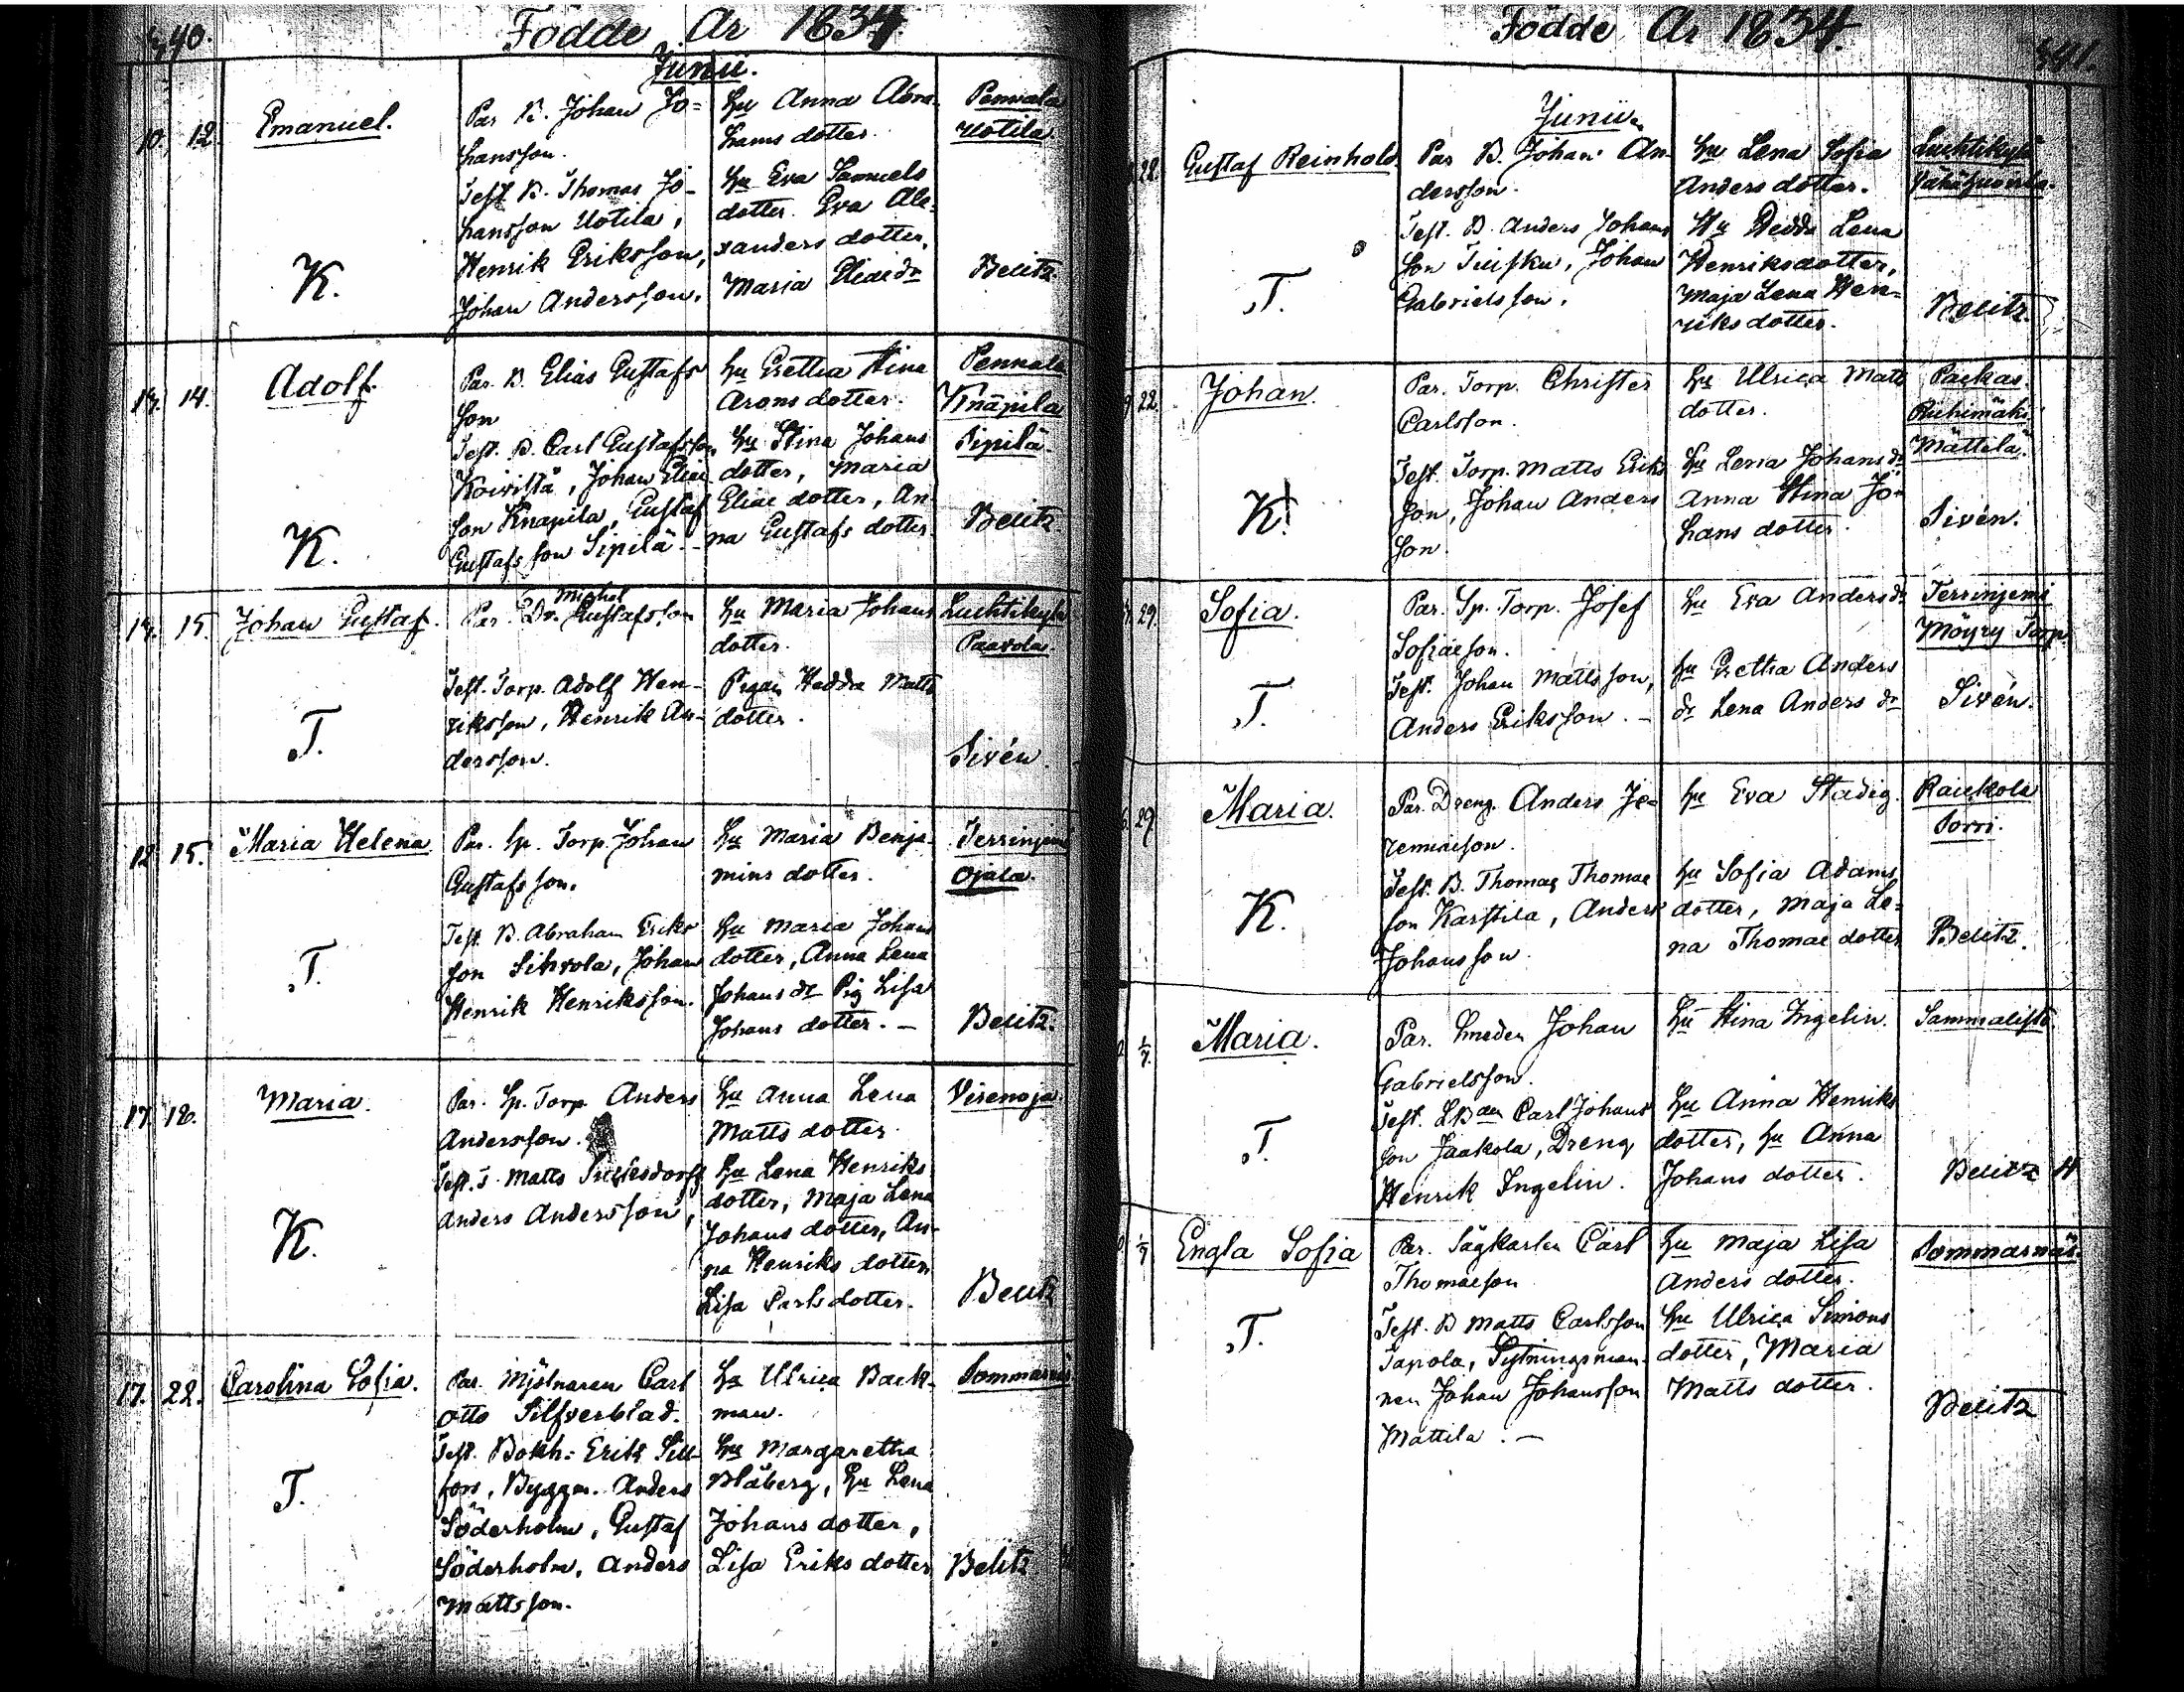 440.
Födde År 1834.
Junii.
10. 12. Emanuel.
K.
Par B. Johan Jo=
hansson.
Test B. Thomas Jo-
hansson Uotila,
Henrik Eriksson,
Johan Andersson.
hu Anna Abra-
hams dotter.
hu Eva Samuels
dotter. Eva Ale-
xanders dotter,
Maria Eliaedr
Pennala
Uotila
Belitz
14. Adolf.
K.
Par. B. Elias Gustafs
son
Test. B. Carl Gustafsson
Koivistå, Johan Eliae
son Knapila, Gustaf
Gustafs son Sipilä.-
hu Gretha Stina
Arons dotter.
hu Stina Johans
dotter, Maria
Eliae dotter, An-
na Gustafs dotter
Pennala
Knäpila
Sipilä
Belitz
15. Johan Gustaf.
T.
Michel
Par. Dr. Gustafsson
Test. Torp. Adolf Hen-
riksson, Henrik An-
dersson.
hu Maria Johans
dotter.
Pigan Hedda Matts
dotter.
Luhtikylä
Paavola.
Sivén.
12 15. Maria Helena
T.
Par. Sp. Torp. Johan
Gustafs son.
Test. B. Abraham Eriks
son Sihvola, Johan
Henrik Henriksson.
hu Maria Benja-
mins dotter.
hu Maria Johans
dotter, Anna Lena
Johans dr Pig Lisa
Johans dotter. -
Terrinjemi
Ojala.
Belitz.
17 18. Maria.
K.
Par. Sp. Torp Anders
Andersson.
Test. T. Matts
Anders Andersson,
hu Anna Lena
Matts dotter
hu Lena Henriks
dotter, Maja Lena
Johans dotter, An-
na Henriks dotter
Lisa Carls dotter.
Virenoja
Belitz
17. 22. Carolina Sofia.
T.
Par. Mjölnaren Carl
Otto Silfverblad.
Test. Bokh: Erik Sill-
fors, Byggm. Anders
Söderholm, Gustaf
Söderholm, Anders
Mattsson.
hu Ulrica Back-
man.
hu Margaretha
Blåberg, hu Lena
Johans dotter,
Lisa Eriks dotter
Sommarnäs
Belitz
Födde År 1834.
441.
Junii
22. Gustaf Reinhold
T.
Par B. Johan An-
dersson.
Test. B. Anders Johans
son Tuisku, Johan
Gabrielsson.
hu Lena Sofia
Anders dotter.
Hu Hedda Lena
Henriksdotter,
Maja Lena Hen-
riks dotter.
Luhtikylä
Belitz
22 Johan.
K.
Par. Torp. Christer
Carlsson.
Test. Torp. Matts Eriks
son, Johan Anders
son.
hu Ulrica Matts
dotter.
hu Lena Johans dr
Anna Stina Jo-
hans dotter.
Packas
Riihimäki
Mattila
Sivén.
29. Sofia.
T.
Par. Sp. Torp. Josef
Sofiaeson.
Test. Johan Matts son,
Anders Eriksson. -
hu Eva Anders dr
hu Gretha Anders
dr Lena Anders dr
Terrinjemi
Möyry Torp.
Sivén.
29 Maria.
K.
Par. Dreng. Anders Je-
remiaeson.
Test. B. Thomas Thomae
son Karstila, Anders
Johansson.
hu Eva Stadig.
hu Sofia Adams
dotter, Maja Le-
na Thomae dotter
Raickola
Sorri.
Belitz.
1/7. Maria.
T.
Par. Smeden Johan
Gabrielsson.
Test. LBden Carl Johans
son Jaakola, Dreng
Henrik Ingelin.
hu Stina Ingelin.
hu Anna Henriks
dotter, hu Anna
Johans dotter.
Sammalisto
Belitz
1/7 Engla Sofia
T.
Par. Sågkarlen Carl
Thomaeson
Test. B Matts Carlsson
Tapola, Sytningsman-
nen Johan Johansson
Mattila. -
hu Maja Lisa
Anders dotter.
hu Ulrica Simons
dotter, Maria
Matts dotter.
Sommarnäs.
Belitz